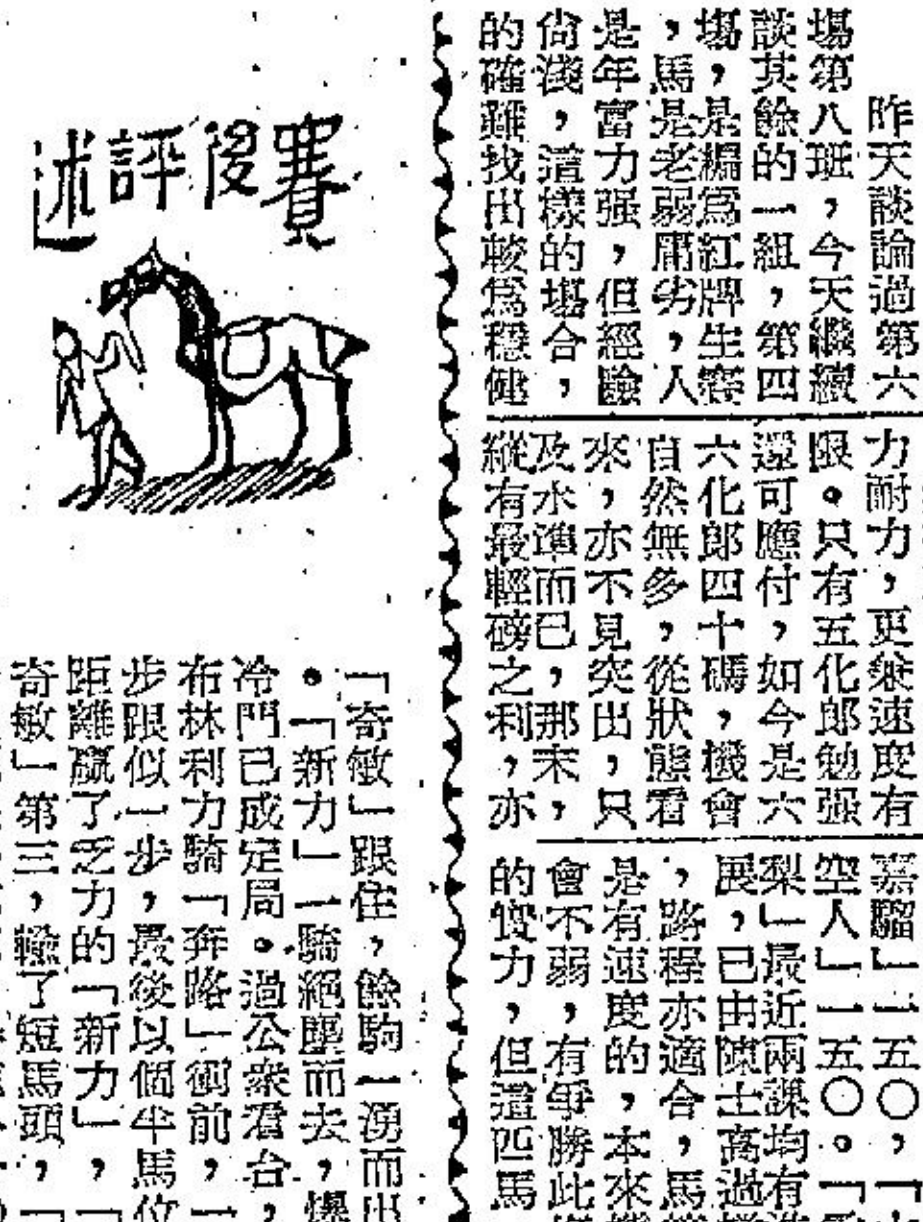 昨天談論過第六
場第八班，今天繼續
談其餘的一組，第四
場，是編爲紅牌生賽
，馬是老弱庸劣，人
是年富力强，但經驗
尙淺，這樣的場合，
的確難找出較爲穩健
力耐力，更兼速度有
限。只有五化郎勉强
還可應付，如今是六
六化郎四十碼，機會
自然無多，從狀態看
來，亦不見突出，只
及水準而已，那末，
縱有最輕磅之利，亦
嘉騮」一五〇，「
空人」一五〇。「
梨」最近兩課均有進
展，已由陳士高過
，路程亦適合，馬
是有速度的，本來
會不弱，有爭勝此
的實力，但這匹馬
賽後評述
「奇敏」跟住，餘駒一湧而出
。「新力」一騎絕塵而去，爆
冷門已成定局。過公衆看台，
布林利力騎「奔路」衝前，一
步跟似一步，最後以個半馬位
距離贏了乏力的「新力」，「
奇敏」第三，輸了短馬頭，「